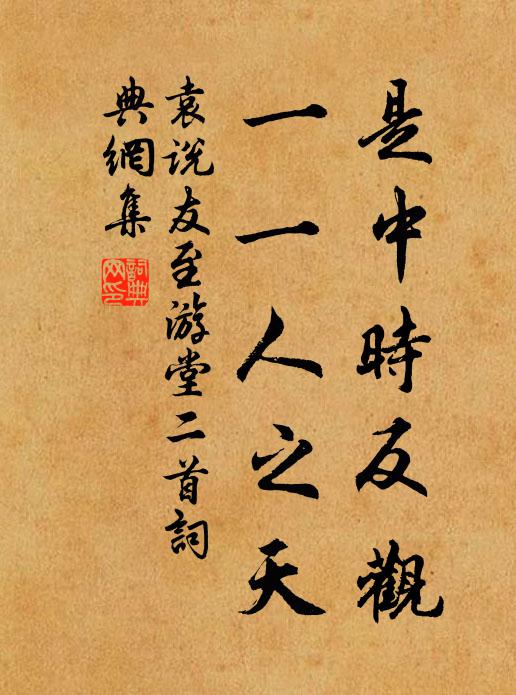 是中時反觀
一一人之天
袁說友至游堂二首詞
典網集
詞典
网印